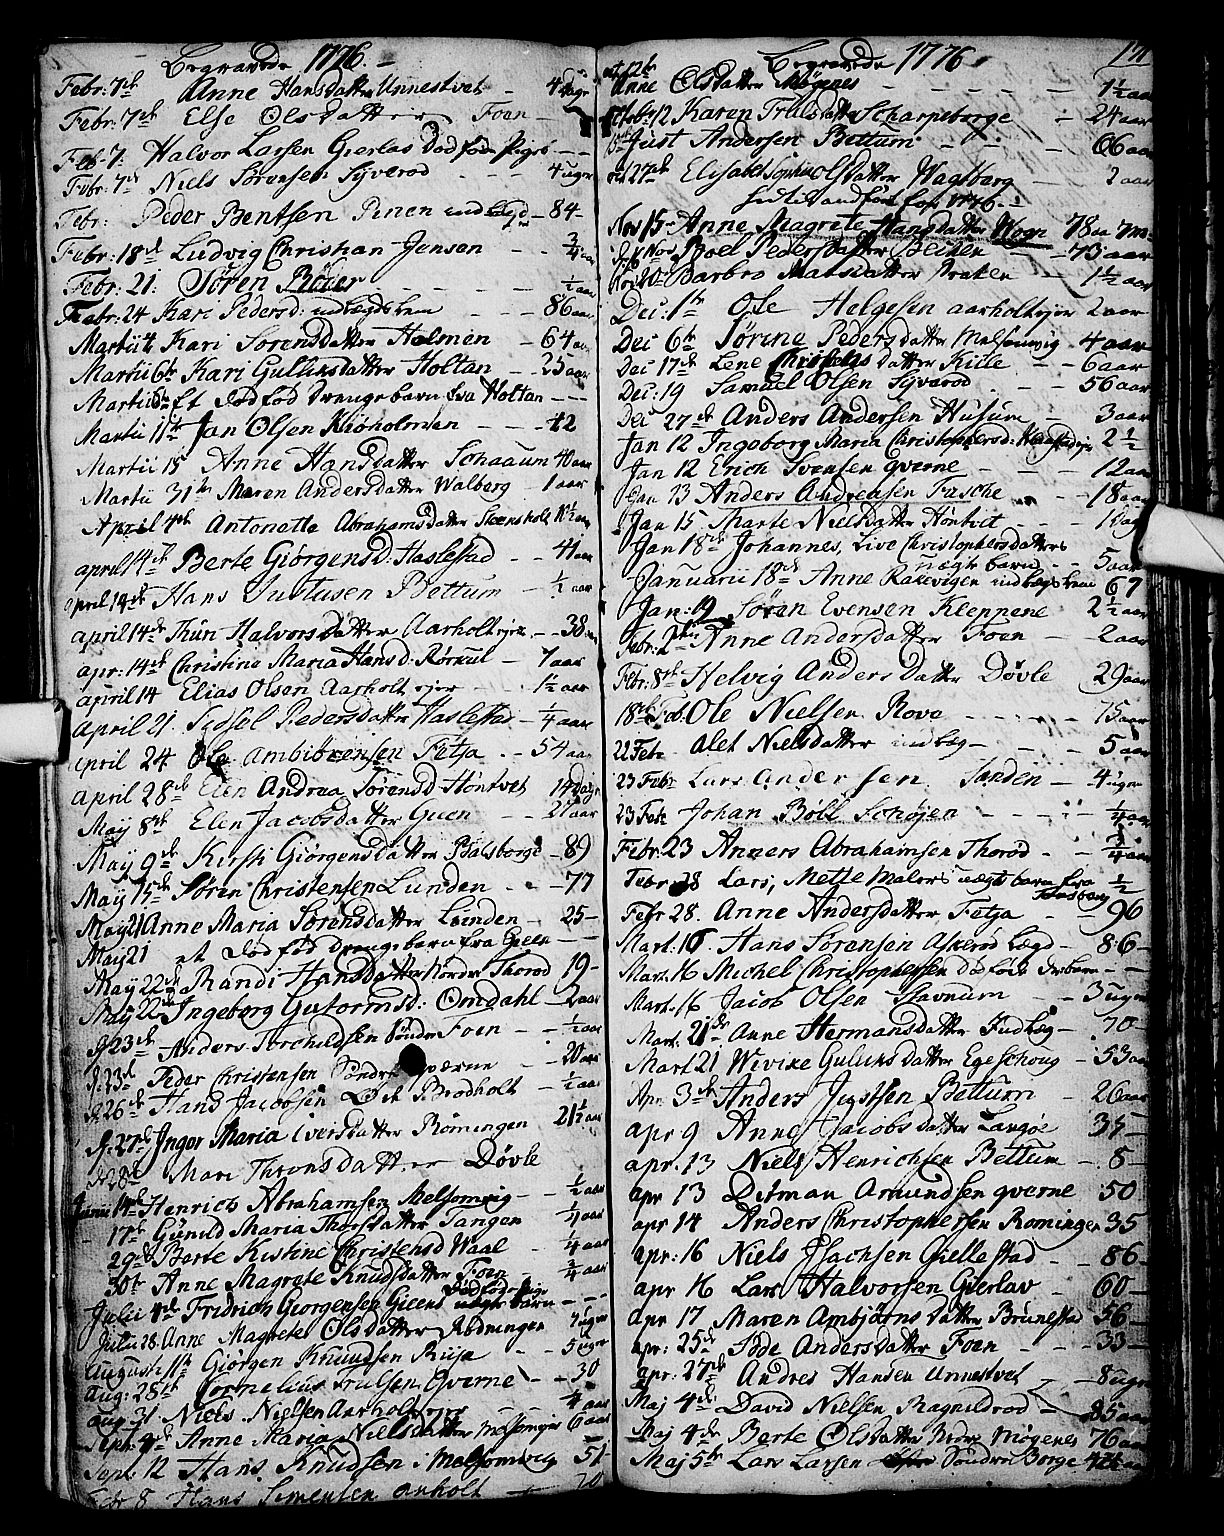 Begravede 1776.
Febr: 7de Anne Hansdatter Unnestvet - 4 dage
Febr: 7de Else Olsdatter Foen -
Feb: 7. Halvor Larsen Gierløs død fød Pigeb - -
Febr: 7de Niels Sørensen Syverød - - - 4 uger
Febr: Peder Bentsen Pinen indlegd - 84 -
Febr: 18de Ludvig Christian Jensen - 3/4 aar
Febr: 21. Søren Røver - - - 1/2 aar
Febr: 24 Kari Pedersd: indlegdslem - - - 86 aar
Martii 4 Kari Sorensdatter Holmen - 64 aar
Martii 6te Kari Gulliksdatter Holtan - 25 aar
Martii Et død fød drengebarn fra Holtan - - -
Martii 11te Jan Olsen Kiøholman - - 42
Martii 15 Anne Hansdatter Schaaum 40 aar
Martii 31te Maren Andersdatter Walberg - 1 aar
April 4de Antonetta Abrahamsdatter Steensholt 10 1/2 aar
april 14de Berte Giørgensd: Haslestad - - 41 aar
april 14de Hans Justusen Bettum - 1/2 aar
april 14de Thuri Halvorsdatter Aarholt ejer - - 38 aar
apr: 14de Christine Maria Hansd: Rørkul - 7 aar
april 14 Elias Olsen Aarholt ejer - - 1 1/2 aar
April 21. Sidsel Pedersdatter Haslestad - 1/4 aar
april 24 Ole Ambiørensen Fetja - - 54 aar
april 28de Elen Andrea Sørensd Høntvet 14 dage
Maÿ 8de Elen Jacobsdatter Guen - - 21 aar
Maÿ 9de Kirsti Giørgensdatter Balsberge - 89
Maÿ 15de Søren Christensen Lunden - - - 77
Maÿ 21 Anne Maria Sorensdatter Lunden - - 25 -
Maÿ 21 et død fød drengebarn fra Gieen - -
Maÿ 22de Randi Hansdatter Nordre Thorød 19 -
Maÿ 22de Ingeborg Gutormsd: Omdahl - 2 aar
d. 23de Anders Torchildsen Søndre Foen - - 1/2 aar
d. 23d Peder Christensen Søndre qværne - 20 aar
d. 26de Hans Jacobsen Brodholt - 1/2 aar
d. 27de Ingør Maria Iversdatter Rømingen 21 1/2 aar
d. 28de Mari Thronsdatter Døvle
Junii 14de Henrich Abrahamsen Melsomvig - - 1/2 aar
17de Gunild Maria Thorsdatter Tangen 1/4 aar
29de Berte Kistine Christensd Waal - 1/4 aar
30te Anne Magrete Knudsdatter Foen - - 3/4 aar
Julii 4de Fridrich Georgensen Gieens dødføde ægte barn - - -
Julii 28. Anne Magrete Olsdatter Rødningen 7 uger
Augusti 11te Giørgen Knudsen Riisa - - 5 uger
Aug: 28de Cornelius Trulsen Qverne - - - 30
aug 31 Niels Nielsen Aarholt ejer - - 4 aar
Sept: 4de Anne Maria Nielsdatter Melsomvig 6 aar
Sept: 12 Hans Knudsen i Melsomvig 51 -
Febr 8 Hans Semensen anholt - 70
Begravede 1776. 171
oct. 12te
Anne Olsdatter Møgenes - - - 1 1/2 aar
octobr: 12 Karen Trulsdatter Scharpeborge - 24 aar
Just Andersen Bettum - - - 66 aar
oct 27de Elisabet Sophie Olsdatter Wagsberg - 2 aar
Nov 15 - Anne Magrete Hansdatter Wogn 78 aa 7 mo
Nov Boel Pedersdatter Berken - - 73 aar
Nov 20 Barbro Mansdatter Braken - 1 1/2 aar
Dec: 1te Ole Helgesen aarholt ejer 2 aar
Dec 6te Sørine Pedersdatter Melsomvig - 4 aar
Dec 17de Lene Christensdatter Kille - - 6 aar
Dec: 19 Samuel Olsen Syverød - - 56 aar
Dec 27de Anders Andersen Husum - - 3 aar
Jan 12 Ingeborg Maria Christophersd: 2 1/2
Jan 12 Erich Svensen qverne - - - 12 aar
Jan 13 Anders Andreasen Fasche - - 18 aar
Jan 15 Marte Nielsdatter Høntvet - - 1 dag
Jan 18de Johannes, Live Christophersdatters
uægte barn - - 5 aar
Januarii 18de Anne Rakevigen indlegdslem 67
Jan: 19 Søren Evensen Kleppene 2 1/2 aar
Febr: 2den Anne Andersdatter Foen - - 2 aar
Febr: 8de Helvig Andersdatter Døvle 29 aar
18de Feb. Ole Nielsen Rove - - - - 75 aar
22 Febr Alet Nielsdatter indlæg - - - 5 aar
23 Febr Lars Andersen Sanden - - 4 uger
23 Febr Johan Bøll Schøjen - - - 1/4 aar
Febr: 23 Anners Abrahamsen Thorød - - 3/4 aar
Febr 28 Lars, Mette Malers uægte barn fra 1/2
Febr 28. Anne Andersdatter Fetja - - 96
Mart. 16 Hans Sørensen Askerød lægd - 86 -
Mart. 16 Michel Christophersen død fødd drbarn - -
Mart. 16 Jacob Olsen Stavnum - - 3 uger
Mart. 21de Anne Hermansdatter Indlæg - 70 -
Mart 21 Wivike Guliksdatter Egeschoug - - 53 aar
Apr. 3de Anders Justsen Bettum - - 26 aar
apr 9 Anne Jacobsdatter Langøe 35 -
apr. 13 Niels Henrichsen Bettum - - 8 -
apr 13 Ditman Amundsen qverne 50
apr 14 Anders Christophersen Rominger 35
apr: 16 Niels Isachsen Giellestad - - 86 -
apr 16 Lars Halvorsen Gierlav - 60 -
apr 17 Maren Ambjørns datter Brunestad 56 -
apr: 25de Ide Andersdatter Foen - - - 33 -
apr. 27de Andres Hansen Unnestvet - 8 uger
Maj 4de David Nielsen Ragnildrød - - 85 aar
Maj 4de Berte Olsdatter Nore Møgenes 76 aar
Maj 5te Lars Larsen Søndre Borge aar